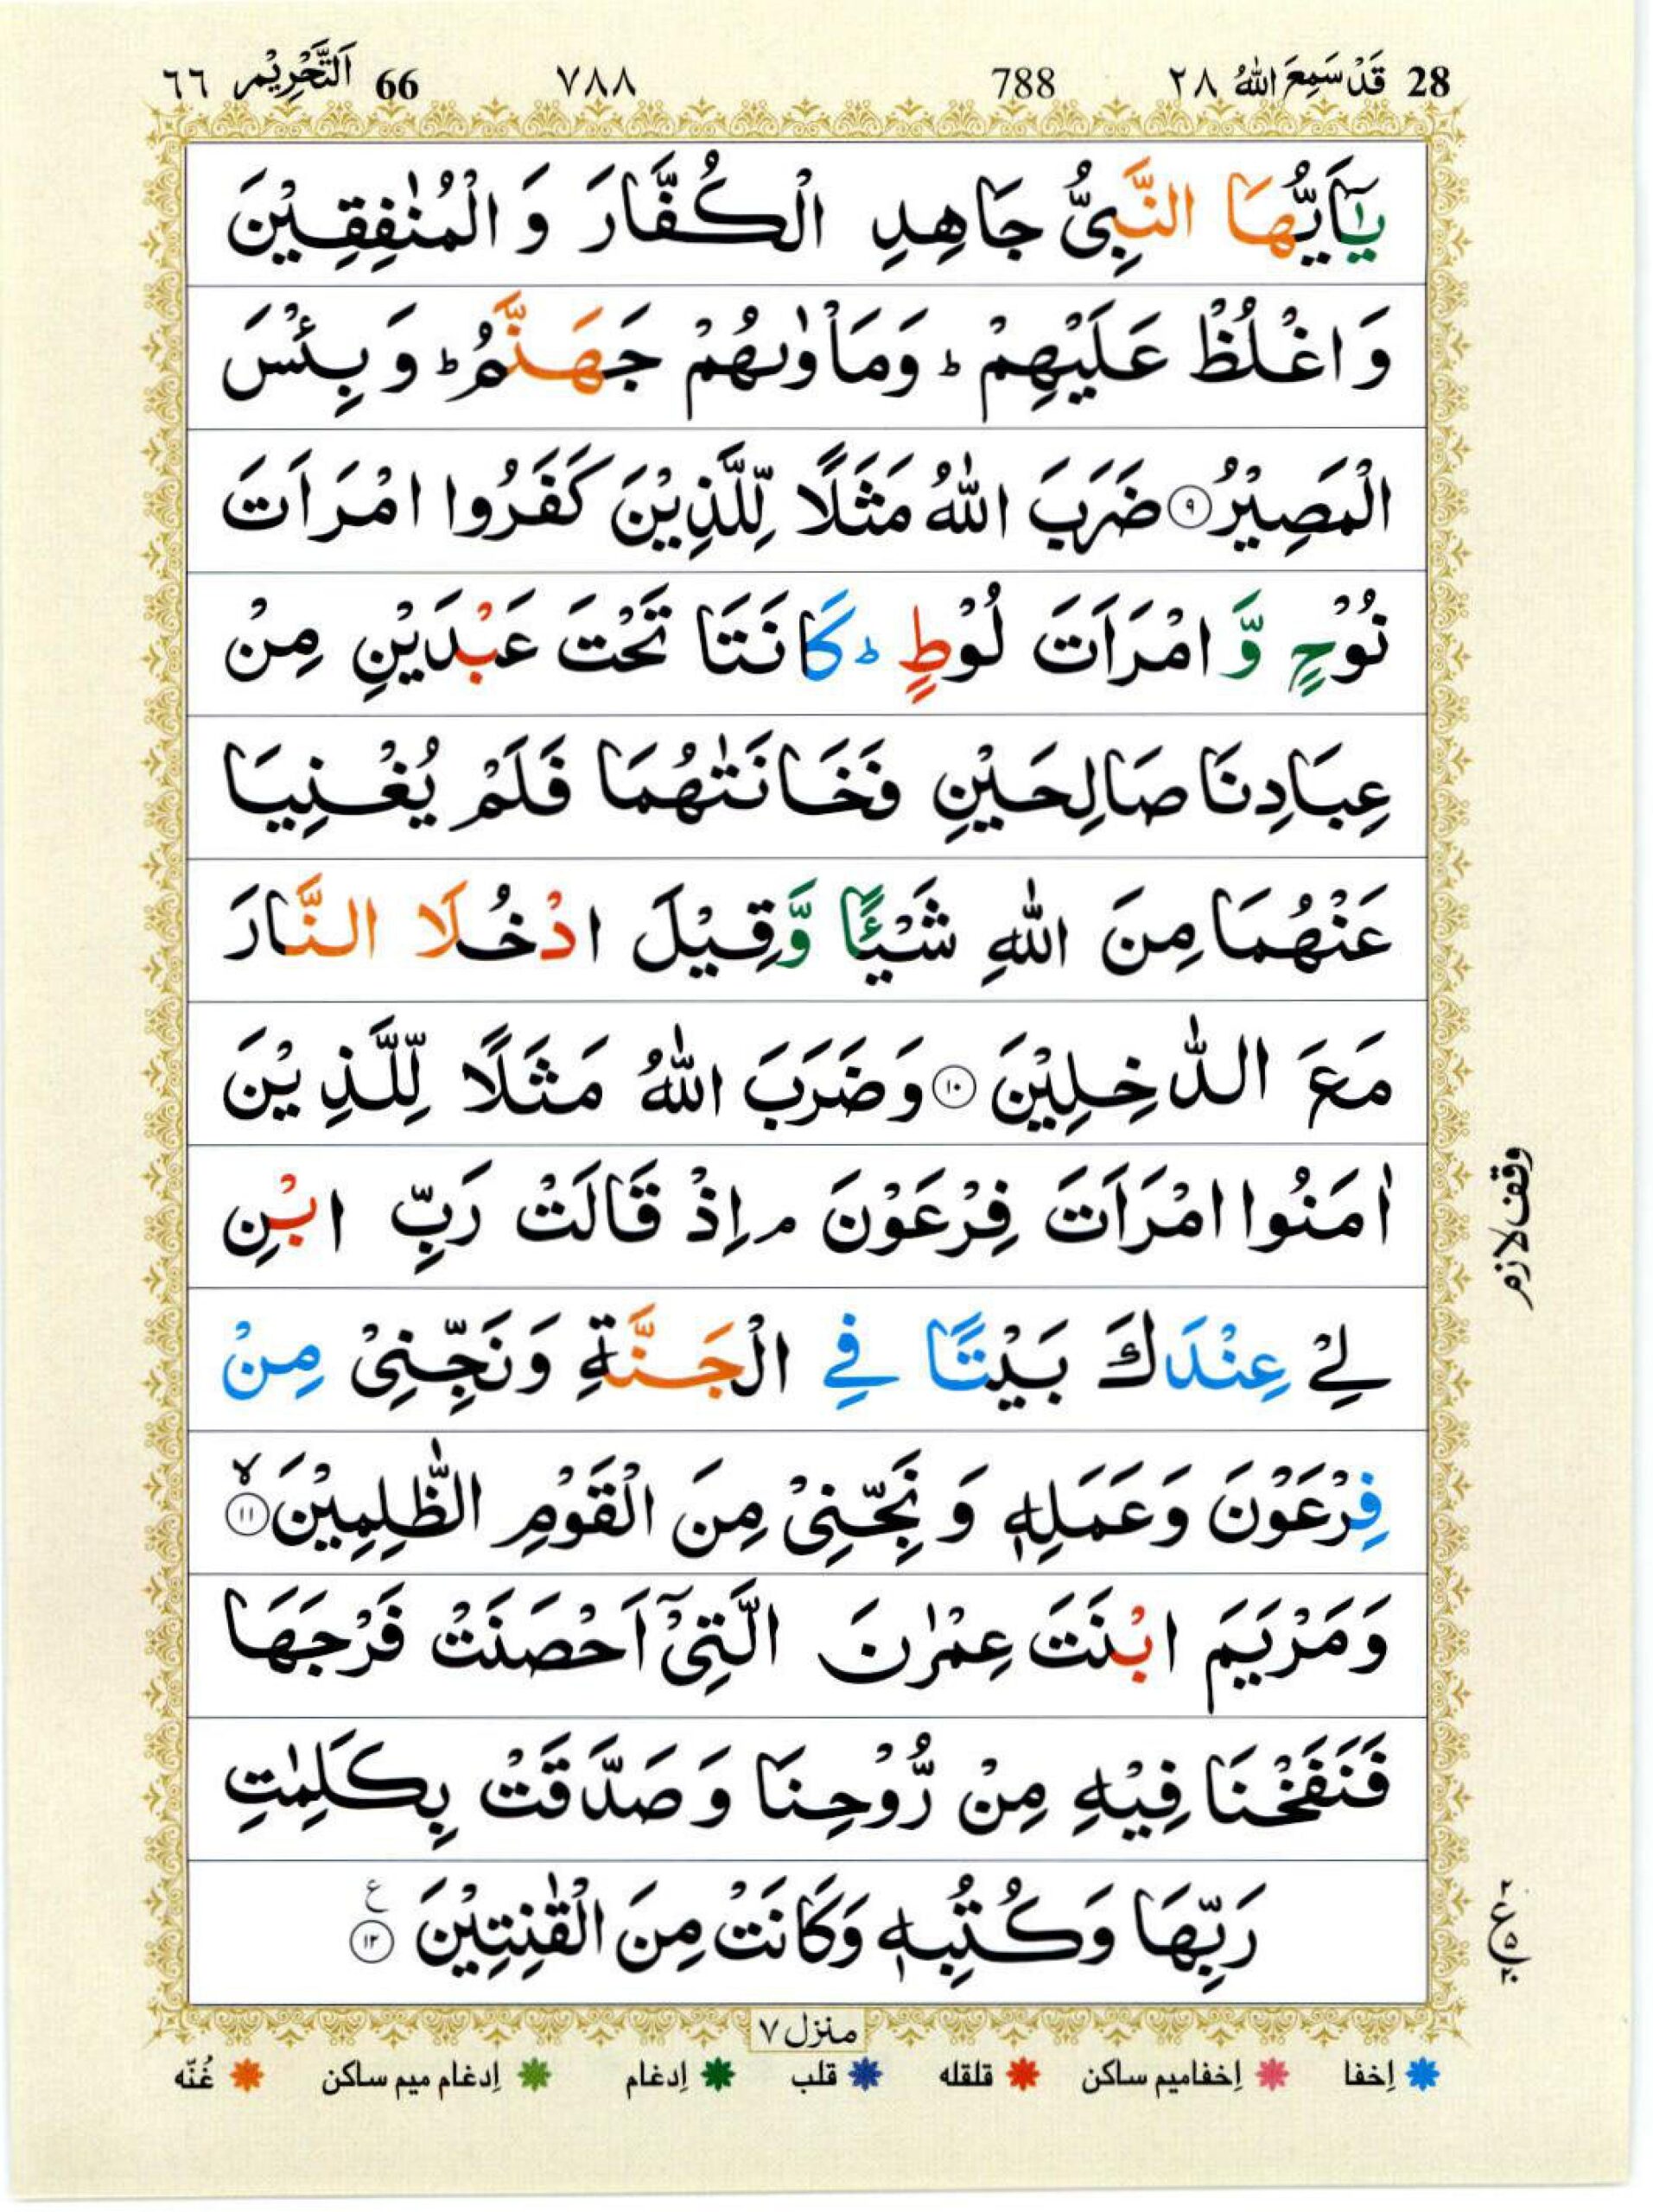 28 قَدْ سَمِعَ اللّٰهُ ٢٨ 788 ٧٨٨ 66 اَلتَّحْرِيْم ٦٦
يٰۤاَيُّهَا النَّبِيُّ جَاهِدِ الْكُفَّارَ وَ الْمُنٰفِقِيْنَ
وَاغْلُظْ عَلَيْهِمْ ؕ وَمَاْوٰىهُمْ جَهَنَّمُ ؕ وَ بِئْسَ
الْمَصِيْرُ ۝٩ ضَرَبَ اللّٰهُ مَثَلًا لِّلَّذِيْنَ كَفَرُوا امْرَاَتَ
نُوْحٍ وَّ امْرَاَتَ لُوْطٍ ؕ كَانَتَا تَحْتَ عَبْدَيْنِ مِنْ
عِبَادِنَا صَالِحَيْنِ فَخَانَتٰهُمَا فَلَمْ يُغْنِيَا
عَنْهُمَا مِنَ اللّٰهِ شَيْـًٔا وَّقِيْلَ ادْخُلَا النَّارَ
مَعَ الدّٰخِلِيْنَ ۝١٠ وَضَرَبَ اللّٰهُ مَثَلًا لِّلَّذِيْنَ
اٰمَنُوا امْرَاَتَ فِرْعَوْنَ ۘ اِذْ قَالَتْ رَبِّ ابْنِ
وقف لازم
لِيْ عِنْدَكَ بَيْتًا فِي الْجَنَّةِ وَنَجِّنِيْ مِنْ
فِرْعَوْنَ وَعَمَلِهٖ وَ نَجِّنِيْ مِنَ الْقَوْمِ الظّٰلِمِيْنَ ۙ۝١١
وَمَرْيَمَ ابْنَتَ عِمْرٰنَ الَّتِيْۤ اَحْصَنَتْ فَرْجَهَا
فَنَفَخْنَا فِيْهِ مِنْ رُّوْحِنَا وَ صَدَّقَتْ بِكَلِمٰتِ
رَبِّهَا وَكُتُبِهٖ وَكَانَتْ مِنَ الْقٰنِتِيْنَ ۝١٢ ع
٢ ع ٥ ٢٠
منزل ٧
إخفا إخفاميم ساكن قلقله قلب إدغام إدغام ميم ساكن غُنّه